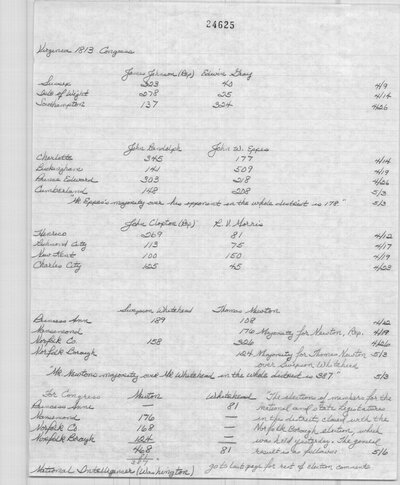 24625
Virginia 1813 Congress
James Johnson (Rep) Edwin Gray
Sussex 323 40 4/9
Isle of Wight 278 25 4/14
Southampton 137 324 4/26
John Randolph John W. Eppes
Charlotte 345 177 4/14
Buckingham 141 509 4/19
Prince Edward 303 218 4/26
Cumberland 148 208 5/3
"Mr Eppes's majority over his opponent in the whole district is 178" 5/3
John Clopton (Rep) R. V. Morris
Henrico 269 81 4/12
Richmond City 113 75 4/17
New Kent 100 150 4/19
Charles City 125 45 4/23
Simpson Whitehead Thomas Newton
Princess Ann 189 108 4/12
Nansemond 176 Majority for Newton, Rep. 4/19
Norfolk Co. 158 326 4/26
Norfolk Borough 124 Majority for Thomas Newton 5/3
over Simpson Whitehead
"Mr Newtons majority over Mr Whitehead in the whole district is 387." 5/3
For Congress Newton Whitehead The elections of members for the
Princess Anne — 81 national and state legislatures
Nansemond 176 — in this district, closed with the
Norfolk Co. 168 — Norfolk Borough election, which
Norfolk Borough 124 — was held yesterday. The general
468 81 result is as follows 5/6
387
National Intelligencer (Washington) go to last page for rest of election comments